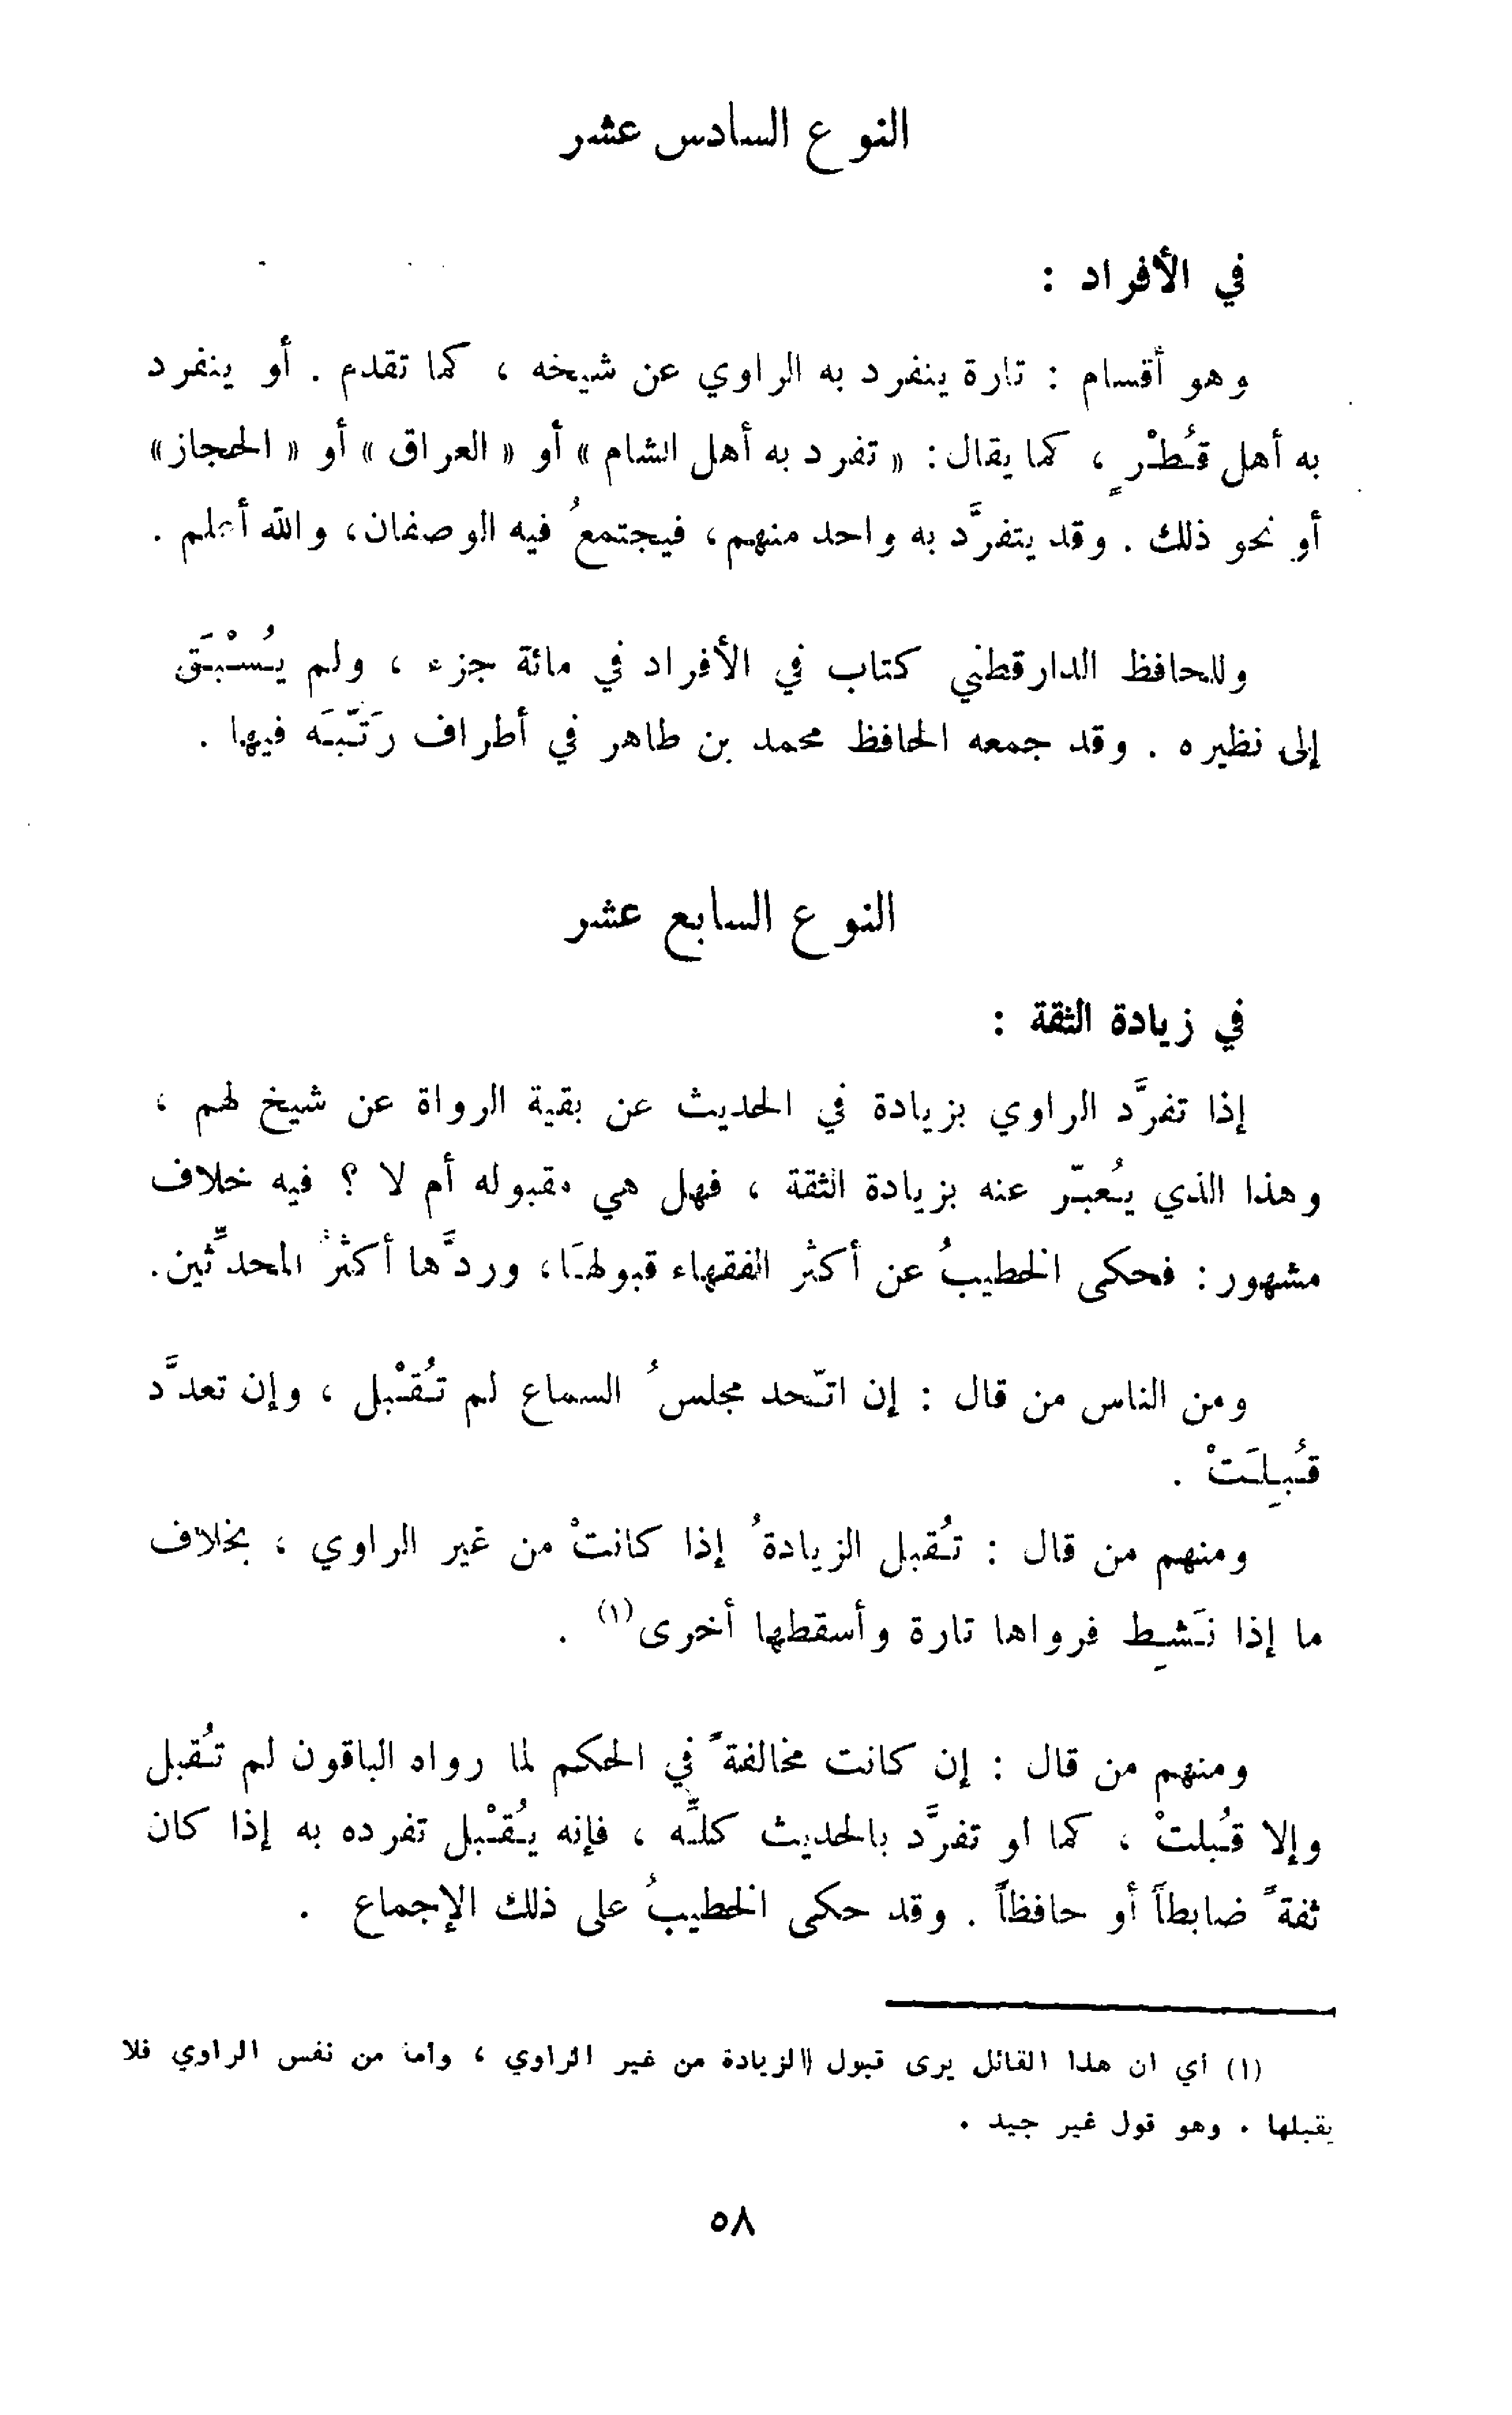 النوع السادس عشر
في الأفراد :
وهو أقسام : تارة ينفرد به الراوي عن شيخه ، كما تقدم . أو ينفرد
به أهل قُطْرٍ ، كما يقال : « تفرد به أهل الشام » أو « العراق » أو « الحجاز»
أو نحو ذلك . وقد يتفرَّد به واحد منهم ، فيجتمعُ فيه الوصفان ، والله أعلم .
وللحافظ الدارقطني كتاب في الأفراد في مائة جزء ، ولم يُسْبَق
إلى نظيره . وقد جمعه الحافظ محمد بن طاهر في أطراف رَتَّبَه فيها .
النوع السابع عشر
في زيادة الثقة :
إذا تفرَّد الراوي بزيادة في الحديث عن بقية الرواة عن شيخ لهم ،
وهذا الذي يُعبّر عنه بزيادة الثقة ، فهل هي مقبوله أم لا ؟ فيه خلاف
مشهور : فحكى الخطيبُ عن أكثر الفقهاء قبولهَا ، وردَّها أكثرُ المحدِّثين .
ومن الناس من قال : إن اتّحد مجلسُ السماع لم تُقْبل ، وإن تعدَّد
قُبِلَتْ .
ومنهم من قال : تُقبل الزيادةُ إذا كانتْ من غير الراوي ، بخلاف
ما إذا نَشِط فرواها تارة وأسقطها أخرى(١) .
ومنهم من قال : إن كانت مخالفةً في الحكم لما رواه الباقون لم تُقبل
وإلا قُبلتْ ، كما او تفرَّد بالحديث كلِّه ، فإنه يُقْبل تفرده به إذا كان
ثقةً ضابطاً أو حافظاً . وقد حكى الخطيبُ على ذلك الإجماع .
(١) أي ان هذا القائل يرى قبول الزيادة من غير الراوي ، واما من نفس الراوي فلا
يقبلها . وهو قول غير جيد .
٥٨